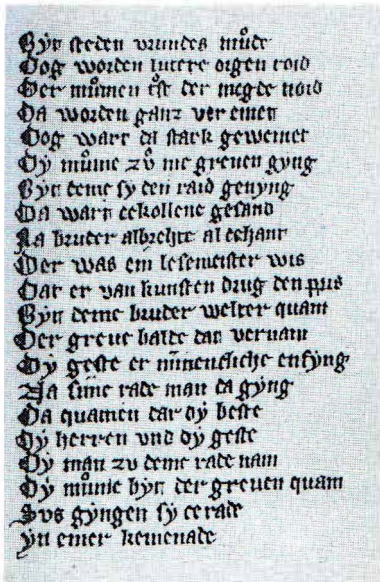 Byr steden vrundes můde
Oog worden lutere oigen roid
Der můmen ist der megde noid
Da worden ganz ver einet
Oog wart da stark geweinet
Dÿ můme zů me greuen gyng
Byn deme sy den raid genyng
Da wart ce kollene gesand
Na bruder albrehte al cehant
Der was ein lesemeister wis
Dar er van kunsten drug den pris
Byn deme bruder welter quam
Der greue balde daz vernam
Dÿ geste er minnensliche enfyng
Zu sime rade man da gyng
Da quamen dar dÿ beste
Dÿ herren vnd dÿ geste
Dÿ man zu deme rade nam
Dÿ můme byn der greuen quam
Sus gyngen sy ce rade
Yn einer kemenade